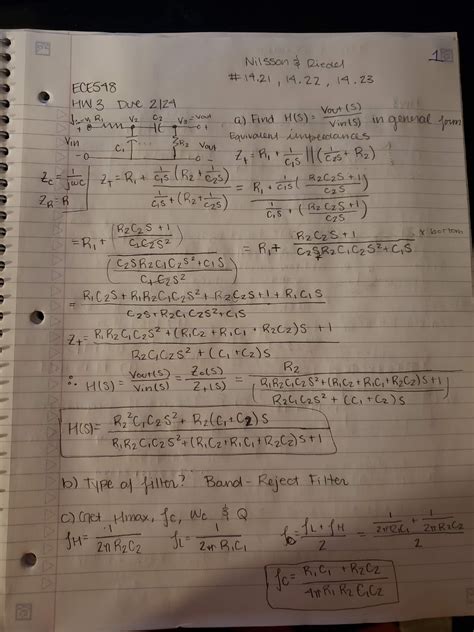 1
Nilsson & Riedel
# 14.21, 14.22, 14.23
ECE548
HW 3 Due 2/24
V1 R1 V2 C2 V3 = Vout
a) Find H(s) = Vout(s)/Vin(s) in general form
Vin C1 R2 Vout
Equivalent impedances
Zt = R1 + 1/C1S || (1/C2S + R2)
Zc = 1/jωC
ZR = R
ZT = R1 + 1/C1S · (R2 + 1/C2S) / (1/C1S + (R2 + 1/C2S)) = R1 + 1/C1S (R2C2S + 1 / C2S) / (1/C1S + (R2C2S + 1 / C2S))
= R1 + ((R2C2S + 1)/(C1C2S²)) / ((C2S R2C1C2S² + C1S)/(C1C2S²)) = R1 + (R2C2S + 1)/(C2S R2C1C2S² + C1S) * bottom
= (R1C2S + R1R2C1C2S² + R2C2S + 1 + R1C1S)/(C2S + R2C1C2S² + C1S)
Zt = (R1R2C1C2S² + (R1C2 + R1C1 + R2C2)S + 1)/(R2C1C2S² + (C1 + C2)S)
∴ H(s) = Vout(s)/Vin(s) = Zo(s)/Zt(s) = R2 / ((R1R2C1C2S² + (R1C2 + R1C1 + R2C2)S + 1)/(R2C1C2S² + (C1 + C2)S))
H(s) = (R2²C1C2S² + R2(C1 + C2)S)/(R1R2C1C2S² + (R1C2 + R1C1 + R2C2)S + 1)
b) Type of filter? Band-Reject Filter
c) Get Hmax, fc, Wc & Q
fH = 1/(2πR2C2) fL = 1/(2πR1C1) fc = (fL + fH)/2 = (1/(2πR1C1) + 1/(2πR2C2))/2
fc = (R1C1 + R2C2)/(4πR1R2C1C2)